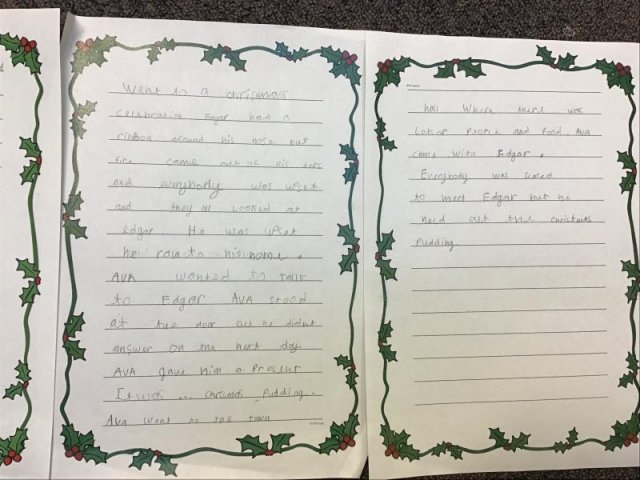 Went to a chrismas
celebration Edgar had a
ribbon around his nose but
fire came out of his ears
and everybody was upset
and they all Looked at
edgar. He was upset
he ran to his home.
AVA wanted to talk
to Edgar AVA stood
at the door but he didnt
answer on the next day
AVA gave him a Present
It was chrismas Pudding.
Ava went to the town
hall Where there was
People and Food. AVA
came with Edgar.
Everybody was scared
to meet Edgar but he
out the christmas
Pudding